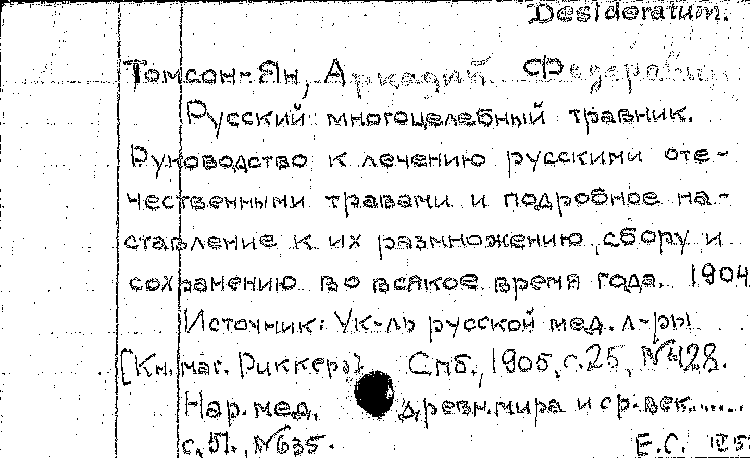 Desideratum.
Томсон-Ян, Аркадий Федерович
Русский многоцелебный травник.
Руководство к лечению русскими оте-
чественными травами и подробное на-
ставление к их размножению, сбору и
сохранению во всякое время года. 1904
Источник: Ук-ль русской мед. л-ры
[Кн. маг. Риккера]. Спб., 1905, с. 25, №428.
Нар. мед. древн. мира и ср. век......
с. 51., №635.
Е.С.